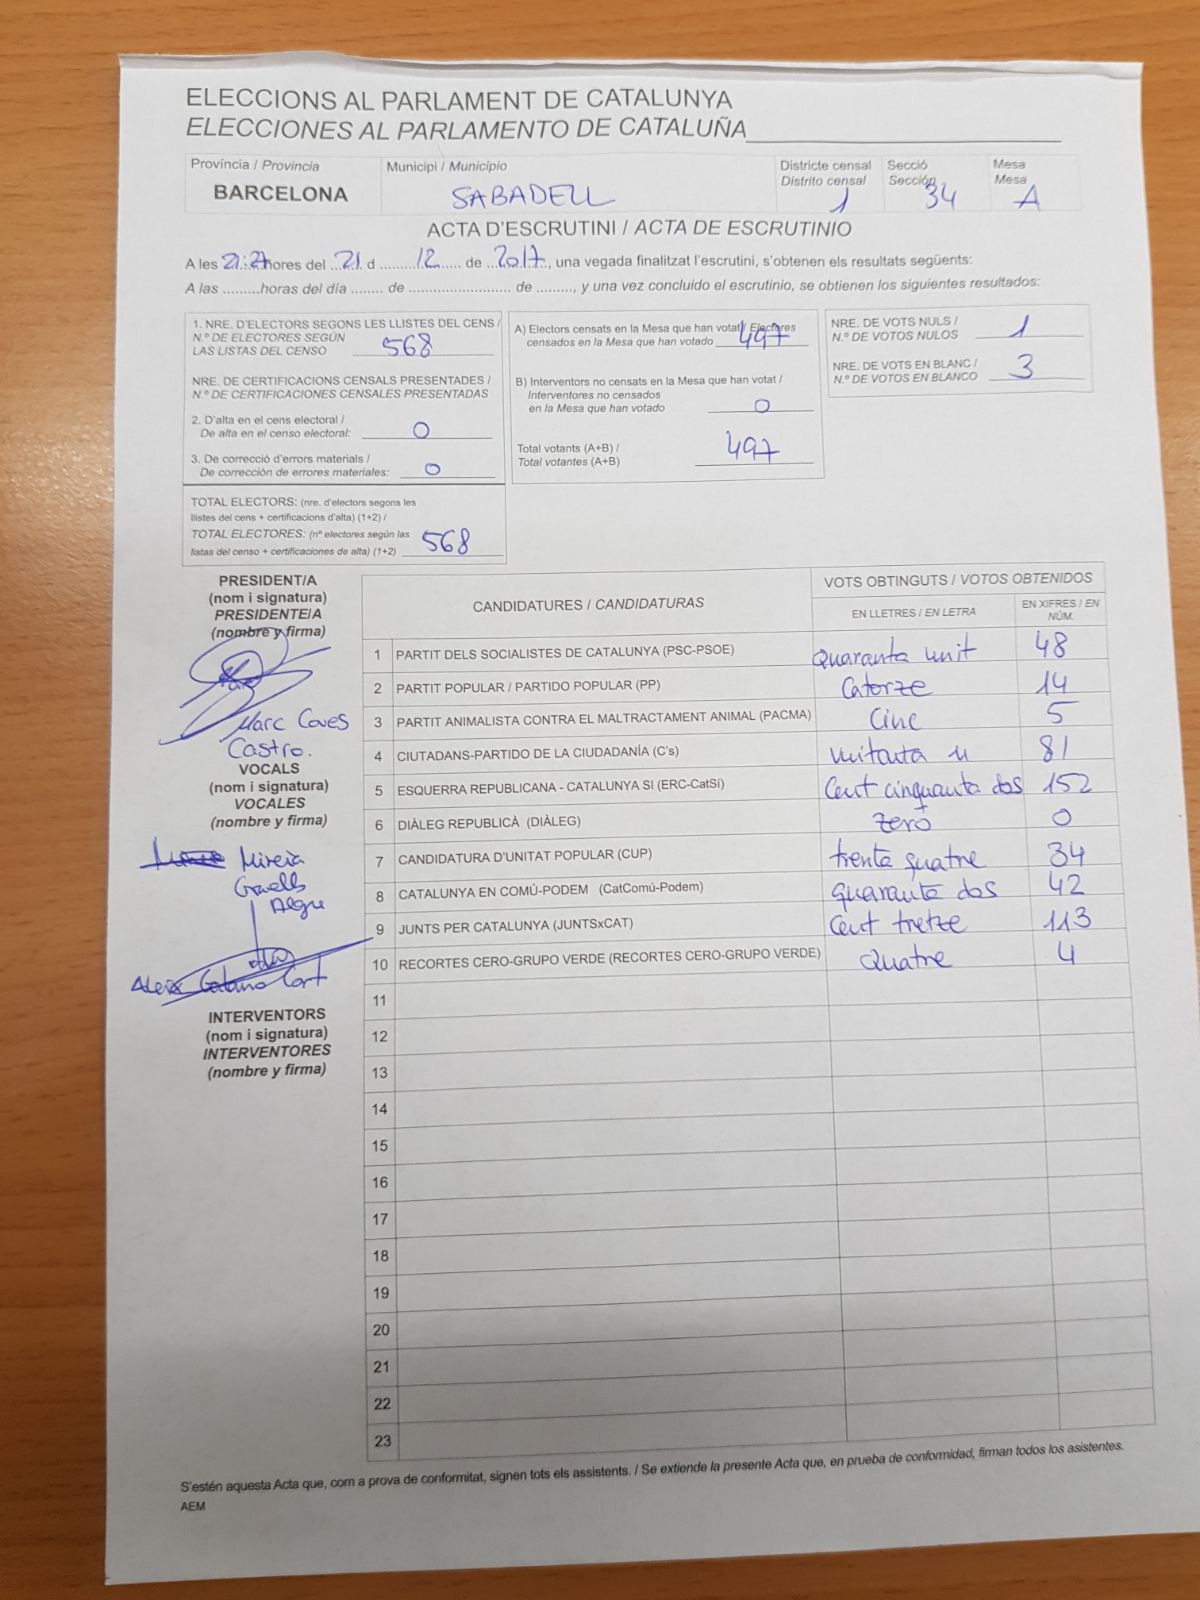 ELECCIONS AL PARLAMENT DE CATALUNYA
ELECCIONES AL PARLAMENTO DE CATALUÑA
Província / Provincia
BARCELONA
Municipi / Municipio
SABADELL
Districte censal
Distrito censal
1
Secció
Sección
34
Mesa
Mesa
A
ACTA D'ESCRUTINI / ACTA DE ESCRUTINIO
A les 21:27 hores del 21 d 12 de 2017, una vegada finalitzat l'escrutini, s'obtenen els resultats següents:
A las .........horas del día ........ de ........................ de ........., y una vez concluido el escrutinio, se obtienen los siguientes resultados:
1. NRE. D'ELECTORS SEGONS LES LLISTES DEL CENS /
N.º DE ELECTORES SEGÚN
LAS LISTAS DEL CENSO 568
NRE. DE CERTIFICACIONS CENSALS PRESENTADES /
N.º DE CERTIFICACIONES CENSALES PRESENTADAS
2. D'alta en el cens electoral /
De alta en el censo electoral: 0
3. De correcció d'errors materials /
De corrección de errores materiales: 0
TOTAL ELECTORS: (nre. d'electors segons les
llistes del cens + certificacions d'alta) (1+2) /
TOTAL ELECTORES: (nº electores según las
listas del censo + certificaciones de alta) (1+2) 568
A) Electors censats en la Mesa que han votat / Electores
censados en la Mesa que han votado 497
B) Interventors no censats en la Mesa que han votat /
Interventores no censados
en la Mesa que han votado 0
Total votants (A+B) /
Total votantes (A+B) 497
NRE. DE VOTS NULS /
N.º DE VOTOS NULOS 1
NRE. DE VOTS EN BLANC /
N.º DE VOTOS EN BLANCO 3
PRESIDENT/A
(nom i signatura)
PRESIDENTE/A
(nombre y firma)
Marc Coves
Castro.
VOCALS
(nom i signatura)
VOCALES
(nombre y firma)
Mireia
Alegre
Aleix
INTERVENTORS
(nom i signatura)
INTERVENTORES
(nombre y firma)
CANDIDATURES / CANDIDATURAS
VOTS OBTINGUTS / VOTOS OBTENIDOS
EN LLETRES / EN LETRA
EN XIFRES / EN
NÚM.
1 PARTIT DELS SOCIALISTES DE CATALUNYA (PSC-PSOE) quaranta unit 48
2 PARTIT POPULAR / PARTIDO POPULAR (PP) Catorze 14
3 PARTIT ANIMALISTA CONTRA EL MALTRACTAMENT ANIMAL (PACMA) Cinc 5
4 CIUTADANS-PARTIDO DE LA CIUDADANÍA (C's) vuitanta u 81
5 ESQUERRA REPUBLICANA - CATALUNYA SI (ERC-CatSí) Cent cinquanta dos 152
6 DIÀLEG REPUBLICÀ (DIÀLEG) zero 0
7 CANDIDATURA D'UNITAT POPULAR (CUP) trenta quatre 34
8 CATALUNYA EN COMÚ-PODEM (CatComú-Podem) quaranta dos 42
9 JUNTS PER CATALUNYA (JUNTSxCAT) Cent tretze 113
10 RECORTES CERO-GRUPO VERDE (RECORTES CERO-GRUPO VERDE) Quatre 4
11
12
13
14
15
16
17
18
19
20
21
22
23
S'estén aquesta Acta que, com a prova de conformitat, signen tots els assistents. / Se extiende la presente Acta que, en prueba de conformidad, firman todos los asistentes.
AEM